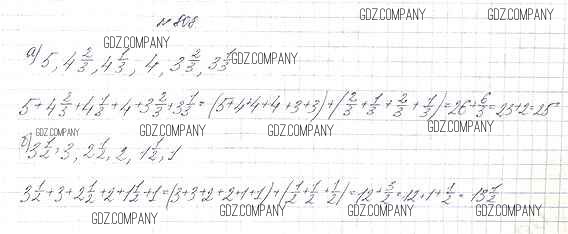 № 808
GDZ.COMPANY GDZ.COMPANY
GDZ.COMPANY
а) 5, 4 2/3, 4 1/3, 4, 3 2/3, 3 1/3 GDZ.COMPANY
5 + 4 2/3 + 4 1/3 + 4 + 3 2/3 + 3 1/3 = (5+4+4+4+3+3) + (2/3 + 1/3 + 2/3 + 1/3) = 26 + 6/3 = 23+2=25
GDZ.COMPANY GDZ.COMPANY GDZ.COMPANY GDZ.COMPANY
б) 3 1/2, 3, 2 1/2, 2, 1 1/2, 1
3 1/2 + 3 + 2 1/2 + 2 + 1 1/2 + 1 = (3+3+2+2+1+1) + (1/2 + 1/2 + 1/2) = 12 + 3/2 = 12 + 1 + 1/2 = 13 1/2
GDZ.COMPANY GDZ.COMPANY GDZ.COMPANY GDZ.COMPANY